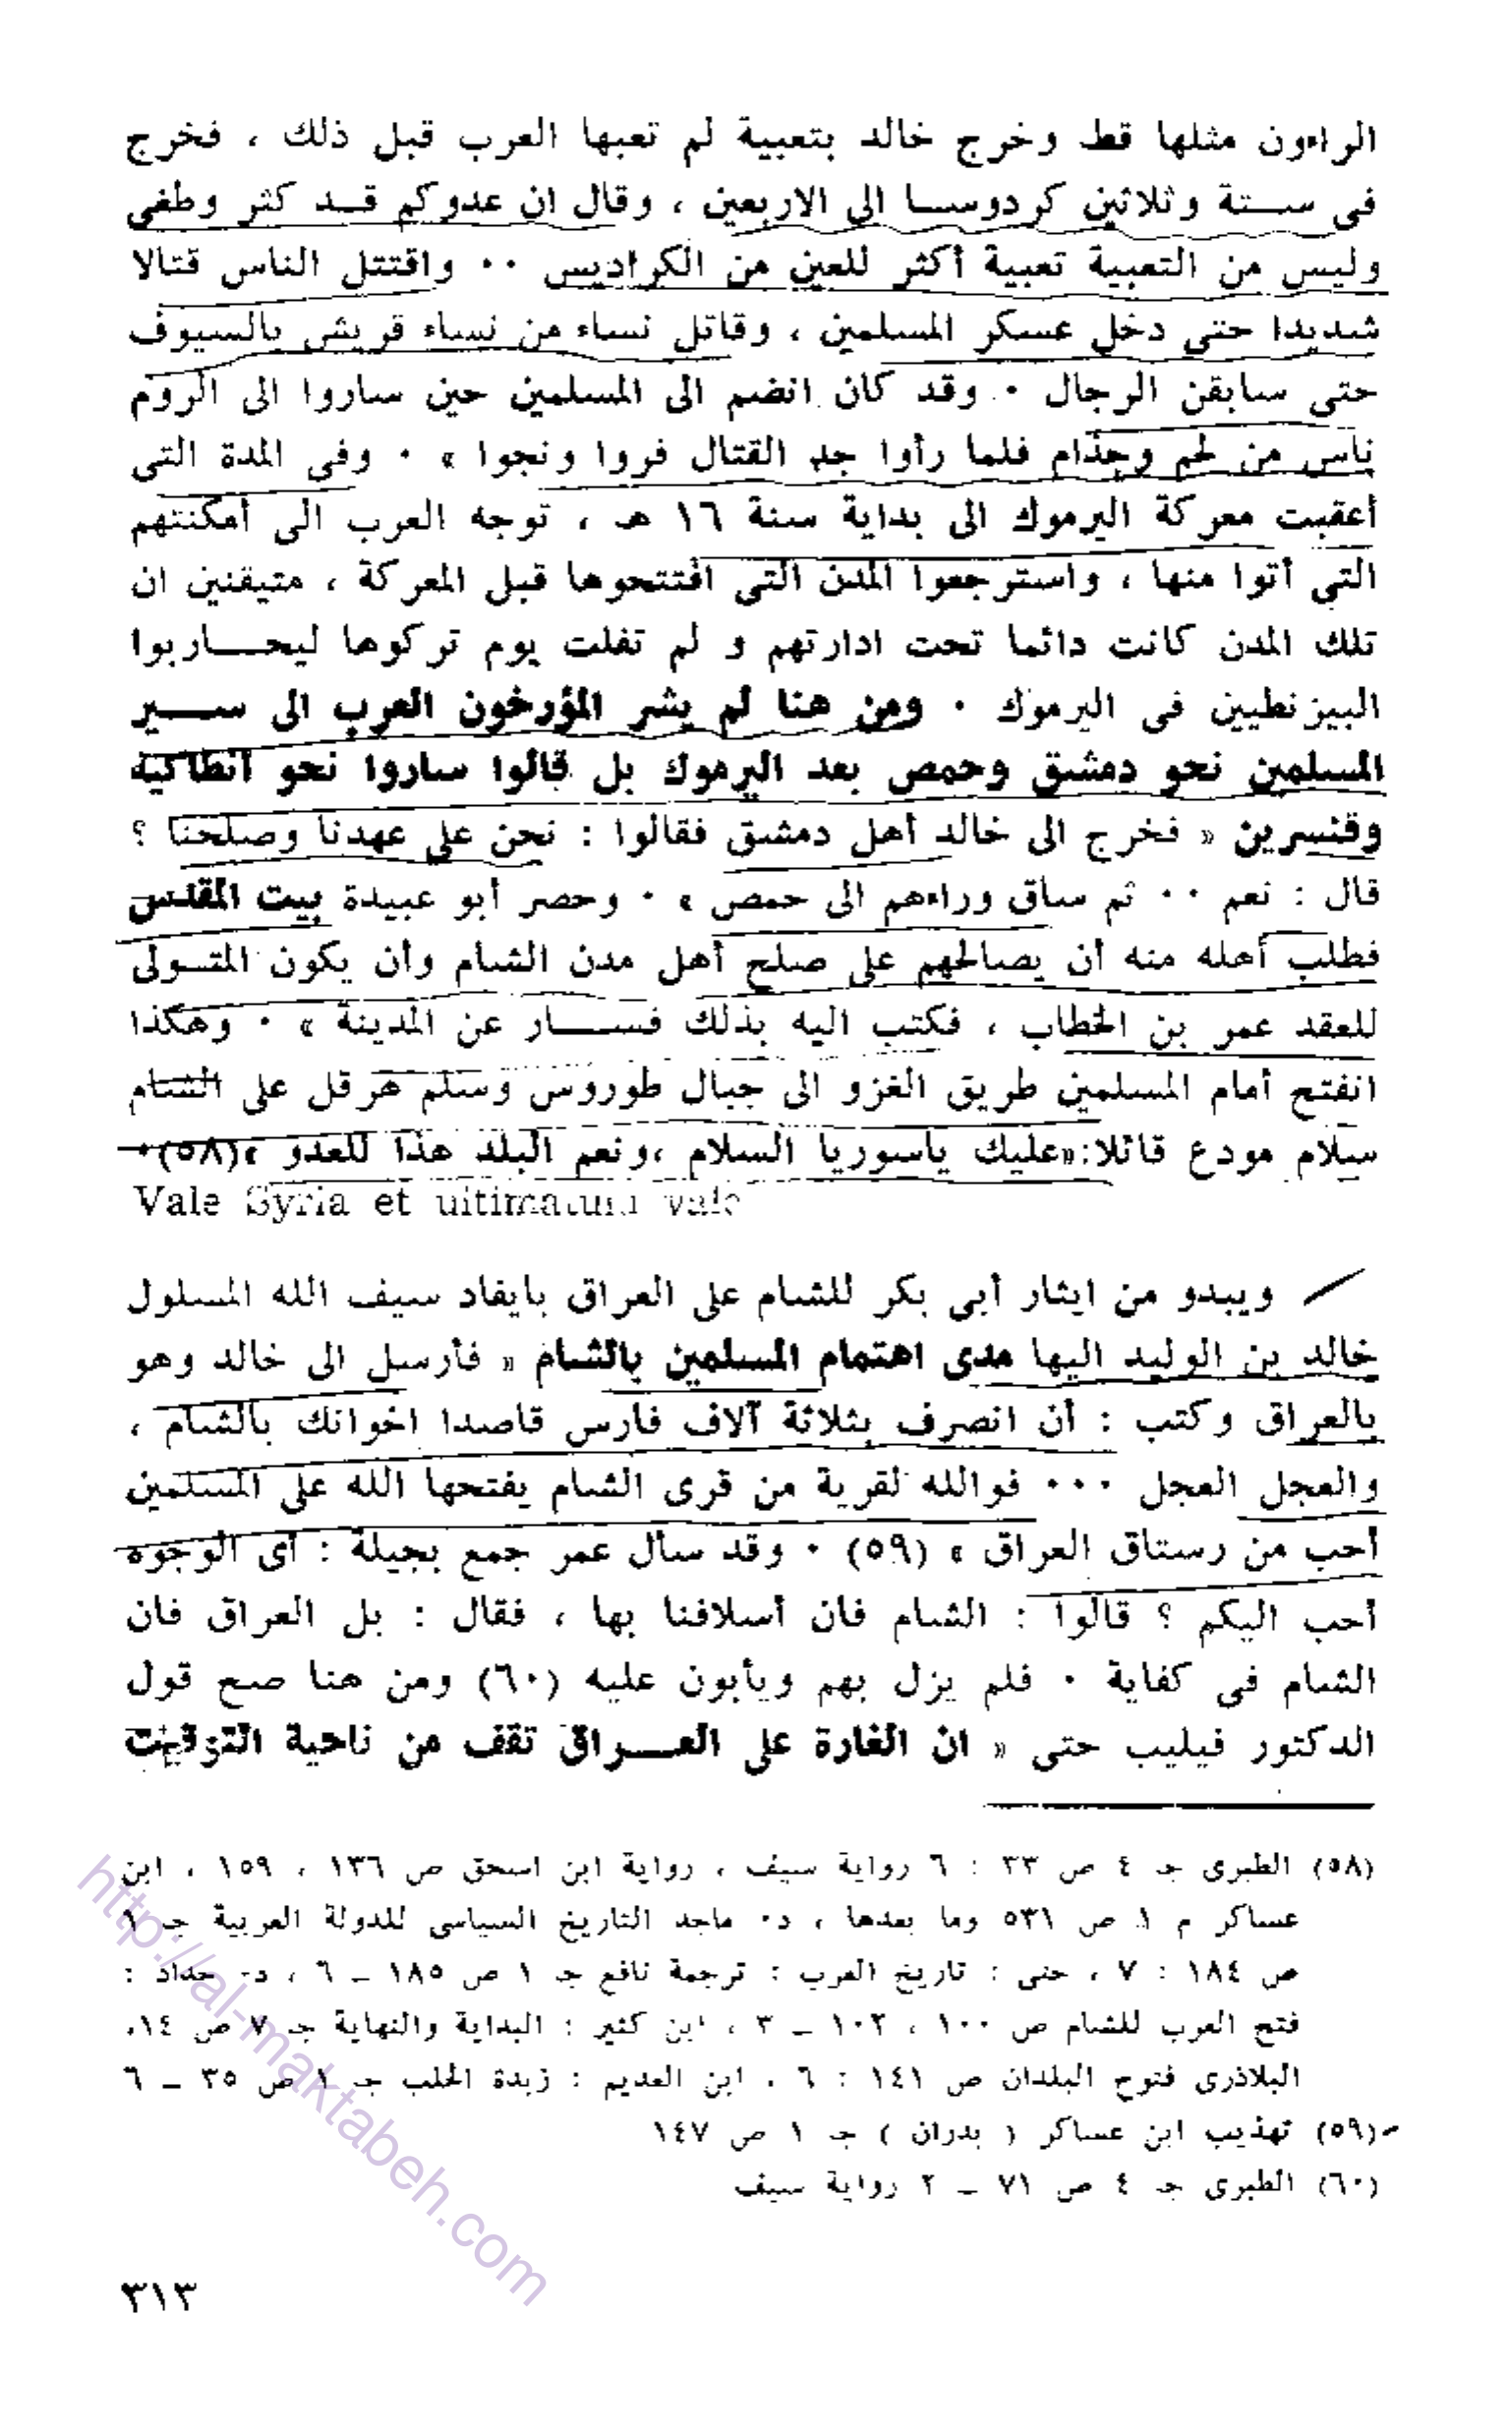 الراءون مثلها قط وخرج خالد بتعبية لم تعبها العرب قبل ذلك ، فخرج
فى ستة وثلاثين كردوسا الى الاربعين ، وقال ان عدوكم قد كثر وطغى
وليس من التعبية تعبية أكثر للعين من الكراديس ٠٠ واقتتل الناس قتالا
شديدا حتى دخل عسكر المسلمين ، وقاتل نساء من نساء قريش بالسيوف
حتى سابقن الرجال ٠ وقد كان انضم الى المسلمين حين ساروا الى الروم
ناس من لخم وجذام فلما رأوا جد القتال فروا ونجوا » ٠ وفى المدة التى
أعقبت معركة اليرموك الى بداية سنة ١٦ هـ ، توجه العرب الى أمكنتهم
التى أتوا منها ، واسترجعوا المدن التى افتتحوها قبل المعركة ، متيقنين ان
تلك المدن كانت دائما تحت ادارتهم و لم تفلت يوم تركوها ليحاربوا
البيزنطيين فى اليرموك ٠ ومن هنا لم يشر المؤرخون العرب الى سير
المسلمين نحو دمشق وحمص بعد اليرموك بل قالوا ساروا نحو انطاكية
وقنسرين « فخرج الى خالد أهل دمشق فقالوا : نحن على عهدنا وصلحنا ؟
قال : نعم ٠٠ ثم ساق وراءهم الى حمص » ٠ وحصر أبو عبيدة بيت المقدس
فطلب أهله منه أن يصالحهم على صلح أهل مدن الشام وأن يكون المتولى
للعقد عمر بن الخطاب ، فكتب اليه بذلك فسار عن المدينة » ٠ وهكذا
انفتح أمام المسلمين طريق الغزو الى جبال طوروس وسلم هرقل على الشام
سلام مودع قائلا:«عليك ياسوريا السلام ،ونعم البلد هذا للعدو »(٥٨)٠
Vale Syria et ultimatum vale
ويبدو من ايثار أبى بكر للشام على العراق بايفاد سيف الله المسلول
خالد بن الوليد اليها مدى اهتمام المسلمين بالشام « فأرسل الى خالد وهو
بالعراق وكتب : أن انصرف بثلاثة آلاف فارس قاصدا اخوانك بالشام ،
والعجل العجل ٠٠٠ فوالله لقرية من قرى الشام يفتحها الله على المسلمين
أحب من رستاق العراق » (٥٩) ٠ وقد سأل عمر جمع بجيلة : أى الوجوه
أحب اليكم ؟ قالوا : الشام فان أسلافنا بها ، فقال : بل العراق فان
الشام فى كفاية ٠ فلم يزل بهم ويأبون عليه (٦٠) ومن هنا صح قول
الدكتور فيليب حتى « ان الغارة على العراق تقف من ناحية التوقيت
(٥٨) الطبرى جـ ٤ ص ٣٣ : ٦ رواية سيف ، رواية ابن اسحق ص ١٣٦ ، ١٥٩ ، ابن
عساكر م ١ ص ٥٣١ وما بعدها ، د٠ ماجد التاريخ السياسى للدولة العربية جـ ١
ص ١٨٤ : ٧ ، حتى : تاريخ العرب : ترجمة نافع جـ ١ ص ١٨٥ ــ ٦ ، د٠ حداد :
فتح العرب للشام ص ١٠٠ ، ١٠٢ ــ ٣ ، ابن كثير : البداية والنهاية جـ ٧ ص ١٤،
البلاذرى فتوح البلدان ص ١٤١ : ٦ ، ابن العديم : زبدة الحلب جـ ١ ص ٣٥ ــ ٦
(٥٩) تهذيب ابن عساكر ( بدران ) جـ ١ ص ١٤٧
(٦٠) الطبرى جـ ٤ ص ٧١ ــ ٢ رواية سيف
٣١٣
http://al-maktabeh.com